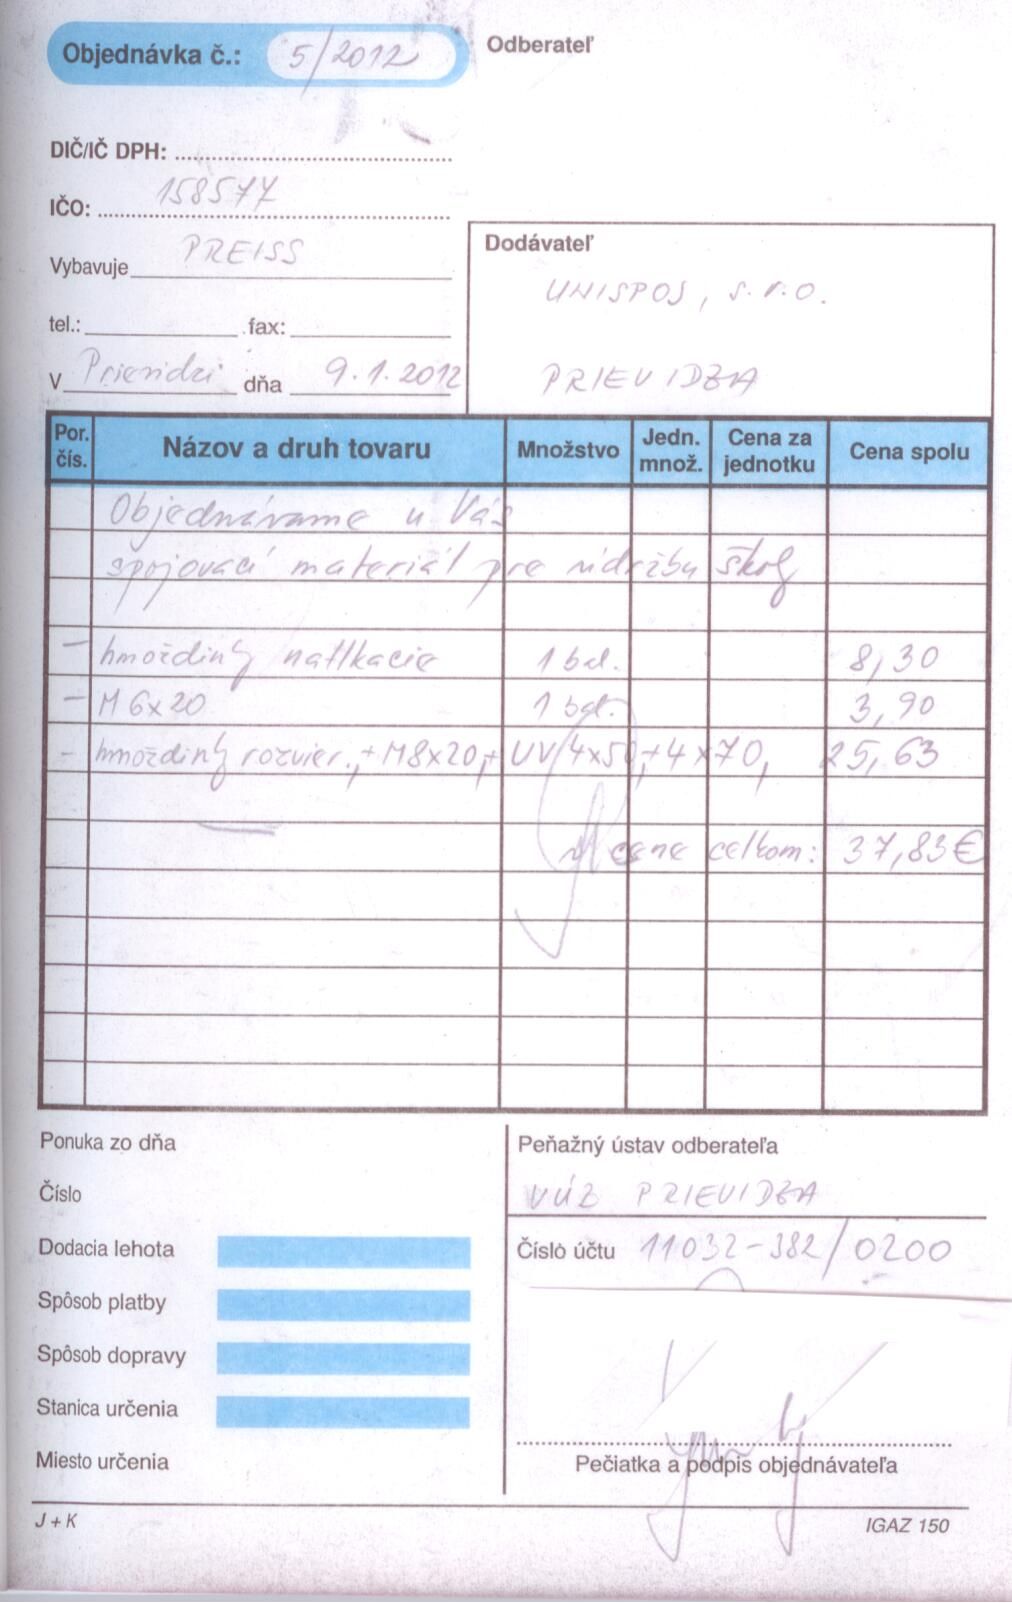 Objednávka č.: 5/2012
Odberateľ
DIČ/IČ DPH:
IČO: 158577
Vybavuje PREISS
tel.: fax:
V Prievidzi dňa 9.1.2012
Dodávateľ
UNISPOS, s.r.o.
PRIEVIDZA
Por. čís. Názov a druh tovaru Množstvo Jedn. množ. Cena za jednotku Cena spolu
Objednávame u Vás
spojovací materiál pre údržbu školy
- hmoždinky natlkacie 1 bal. 8,30
- M 6x20 1 bal. 3,90
- hmoždinky rozvier., + M8x20, + UV 4x50, + 4x70, 25,63
v cene celkom: 37,83 €
Ponuka zo dňa
Číslo
Dodacia lehota
Spôsob platby
Spôsob dopravy
Stanica určenia
Miesto určenia
Peňažný ústav odberateľa
VÚB PRIEVIDZA
Číslo účtu 11032-382/0200
Pečiatka a podpis objednávateľa
J + K
IGAZ 150